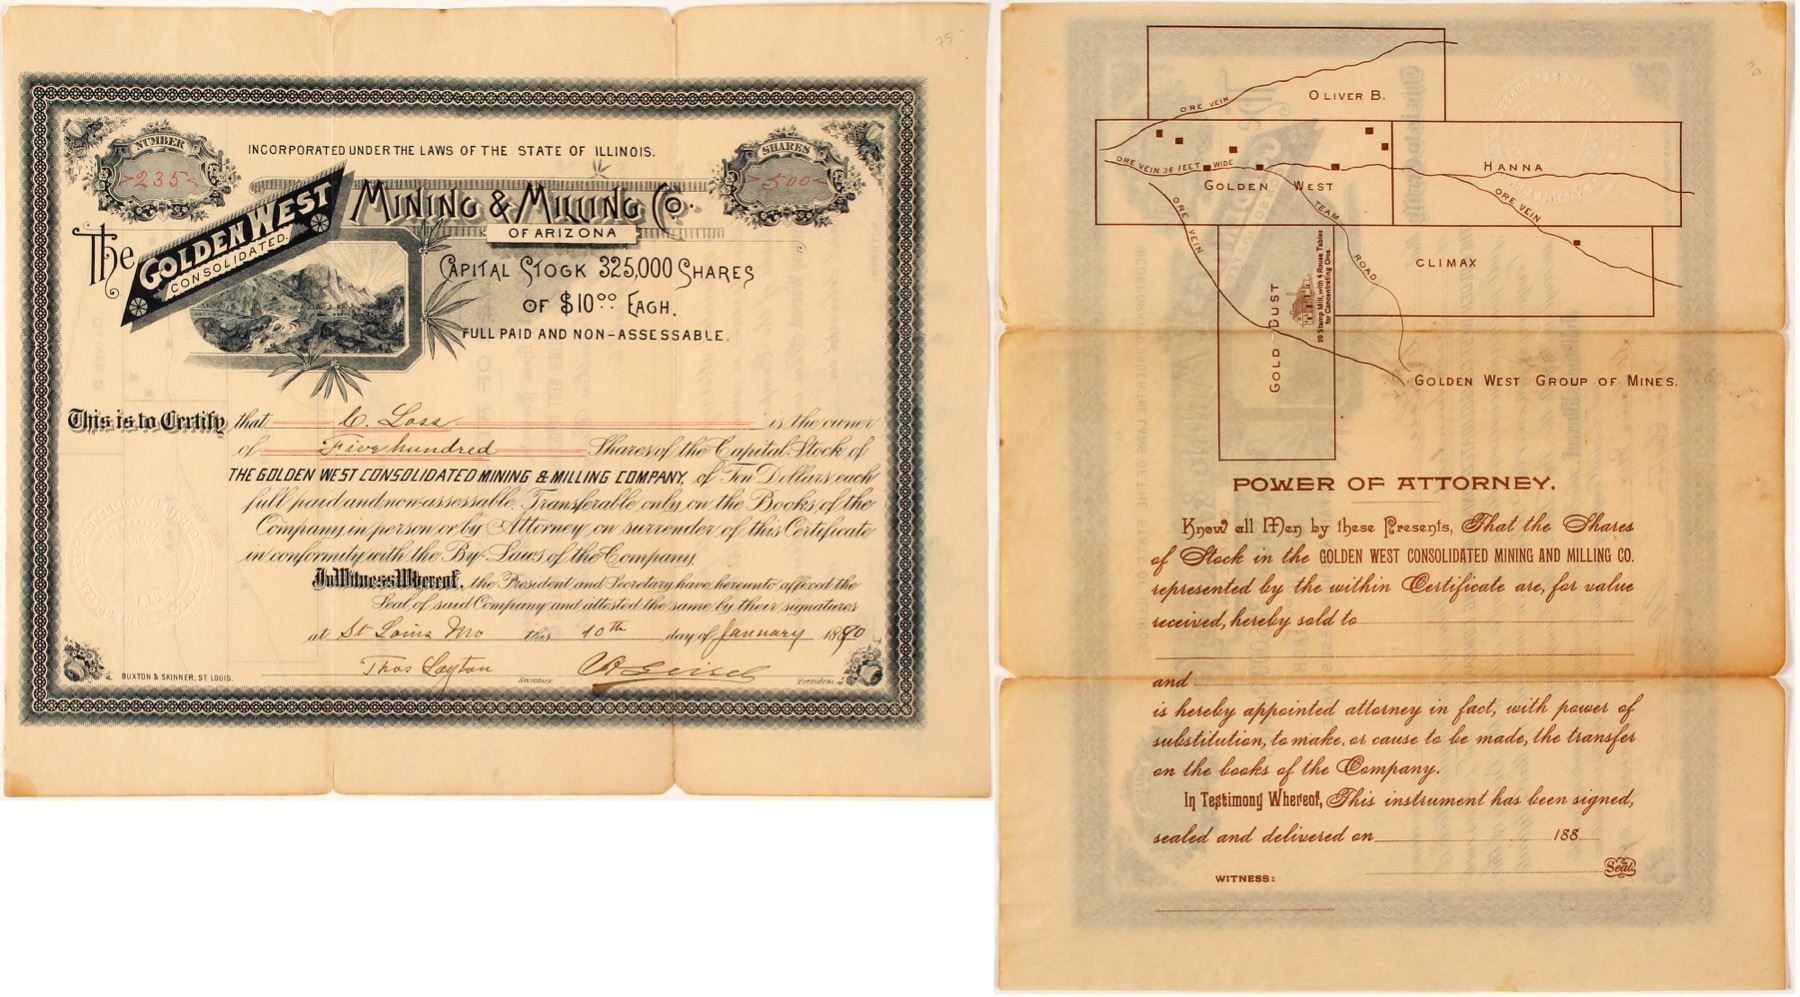 75-
INCORPORATED UNDER THE LAWS OF THE STATE OF ILLINOIS.
NUMBER
235
SHARES
500
The GOLDEN WEST CONSOLIDATED. MINING & MILLING CO.
OF ARIZONA
CAPITAL STOCK 325,000 SHARES
OF $10.00 EACH.
FULL PAID AND NON-ASSESSABLE.
This is to Certify that C. Loss is the owner
of Five hundred Shares of the Capital Stock of
THE GOLDEN WEST CONSOLIDATED MINING & MILLING COMPANY, of Ten Dollars each
full paid and non-assessable. Transferable only on the Books of the
Company in person or by Attorney on surrender of this Certificate
in conformity with the By-Laws of the Company.
In Witness Whereof, the President and Secretary have hereunto affixed the
Seal of said Company and attested the same by their signatures
at St Louis Mo this 10th day of January 1890
Thos Layton
Secretary.
President.
BUXTON & SKINNER, ST. LOUIS.
OLIVER B.
ORE VEIN
ORE VEIN 36 FEET WIDE
GOLDEN WEST
HANNA
ORE VEIN
ORE VEIN
TEAM ROAD
CLIMAX
GOLD DUST
GOLDEN WEST GROUP OF MINES.
POWER OF ATTORNEY.
Know all Men by these Presents, That the Shares
of Stock in the GOLDEN WEST CONSOLIDATED MINING AND MILLING CO.
represented by the within Certificate are, for value
received, hereby sold to
and
is hereby appointed attorney in fact, with power of
substitution, to make, or cause to be made, the transfer
on the books of the Company.
In Testimony Whereof, This instrument has been signed,
sealed and delivered on 188
Seal.
WITNESS: